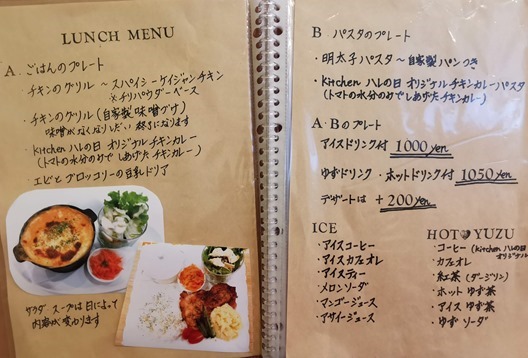 LUNCH MENU
A. ごはんのプレート
・チキンのグリル ~ スパイシーケイジャンチキン
※チリパウダーベース
・チキンのグリル(自家製味噌づけ)
味噌がなくなりしだい終了になります
・Kitchen ハレの日 オリジナルチキンカレー
(トマトの水分のみで しあげたチキンカレー)
・エビとブロッコリーの豆乳ドリア
サラダ スープは日によって
内容が変わります
B パスタのプレート
・明太子パスタ ~ 自家製パンつき
・Kitchen ハレの日 オリジナルチキンカレーパスタ
(トマトの水分のみでしあげたチキンカレー)
A・Bのプレート
アイスドリンク付 1000yen
ゆずドリンク・ホットドリンク付 1050yen
デザートは + 200yen
ICE
・アイスコーヒー
・アイスカフェオレ
・アイスティー
・メロンソーダ
・マンゴージュース
・アサイージュース
HOT YUZU
・コーヒー (Kitchen ハレの日
オリジナル)
・カフェオレ
・紅茶 (ダージリン)
・ホット ゆず茶
・アイス ゆず茶
・ゆず ソーダ